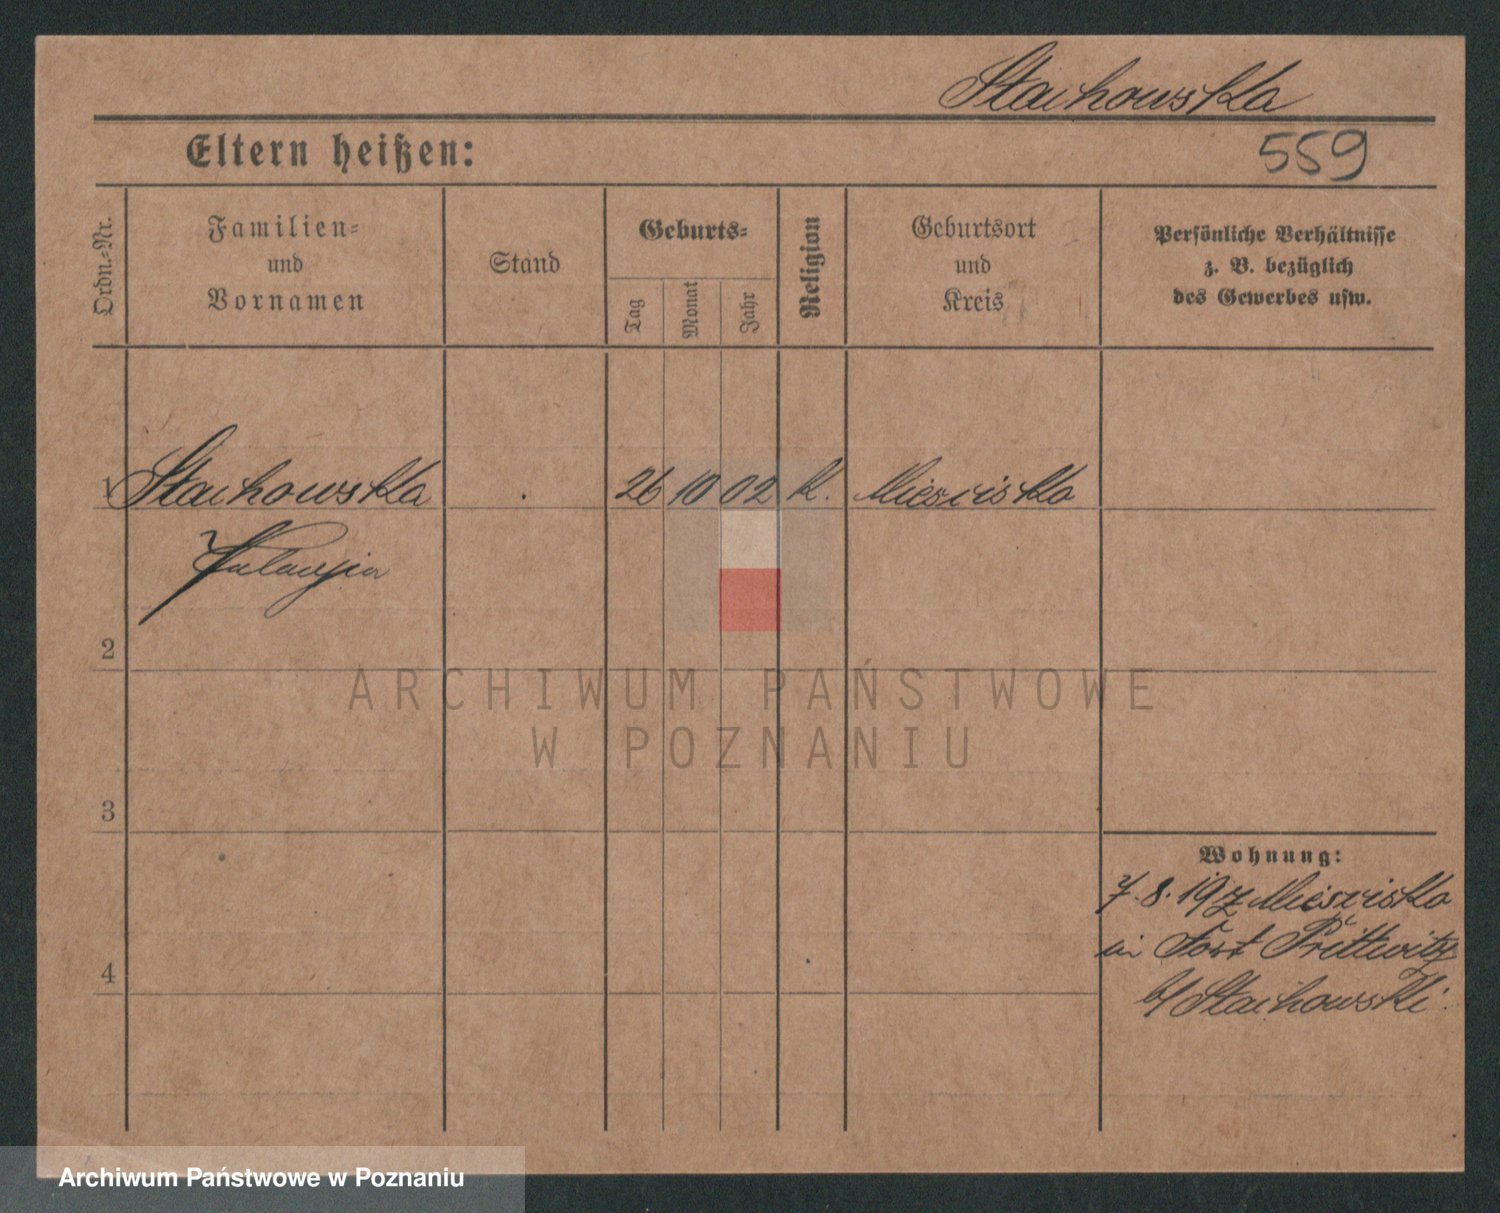 Stachowska
Eltern heißen:
559
Ordn.-Nr.
Familien-
und
Vornamen
Stand
Geburts-
Tag
Monat
Jahr
Religion
Geburtsort
und
Kreis
Persönliche Verhältnisse
z. B. bezüglich
des Gewerbes usw.
1 Stachowska 26 10 02 K. Miesziska
Pelagja
2
3
4
Wohnung:
7.8.17 Miesziska
in Fort Prittwitz
b/ Stachowski.
ARCHIWUM PAŃSTWOWE
W POZNANIU
Archiwum Państwowe w Poznaniu